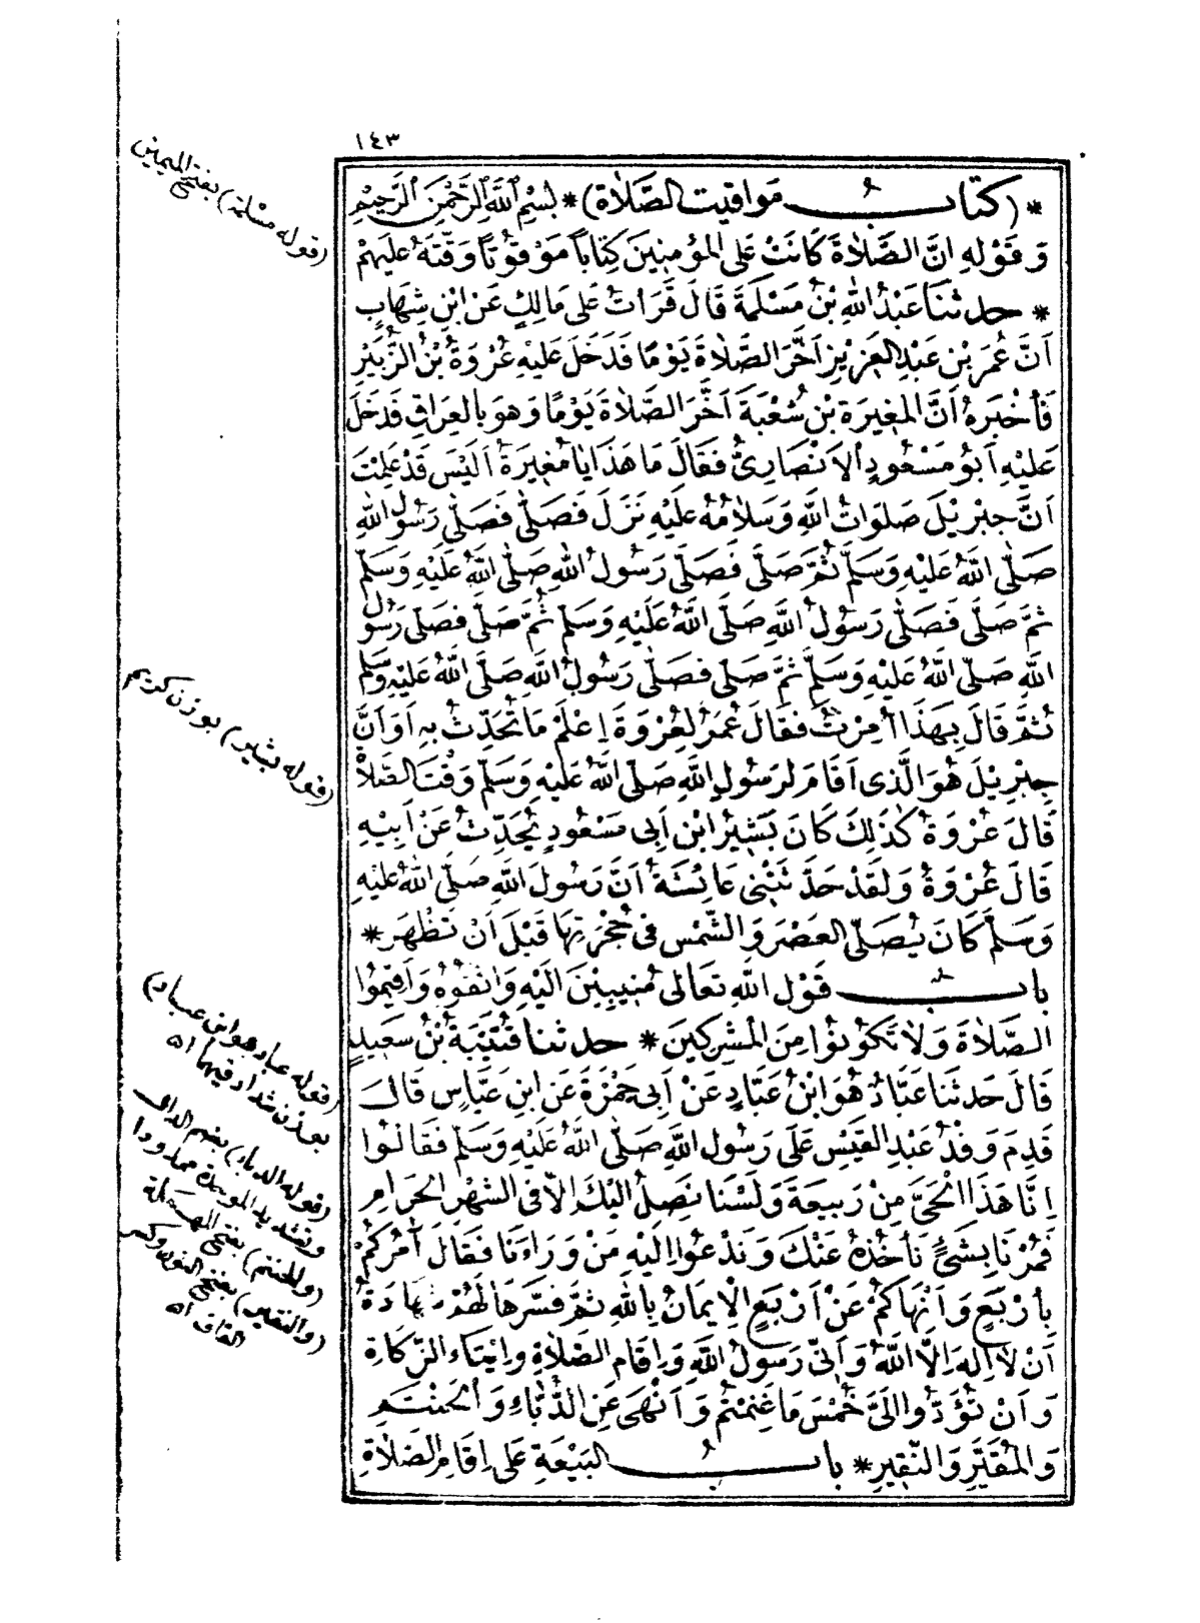 ١٤٣
* (كتابُ مواقيت الصَّلَاة) * بِسْمِ اللَّهِ الرَّحْمَنِ الرَّحِيمِ
وَقَوْلِهِ انَّ الصَّلَاةَ كَانَتْ عَلَى المُؤْمِنِينَ كِتَاباً مَوْقُوتاً وَقَّتَهُ عَلَيْهِمْ
* حدثنَا عَبْدُ اللهِ بْنُ مَسْلَمَةَ قَالَ قَرَأتُ عَلَى مَالِكٍ عَنِ ابْنِ شِهَابٍ
اَنَّ عُمَرَ بْنَ عَبْدِ العَزِيْزِ اَخَّرَ الصَّلَاةَ يَوْمًا فَدَخَلَ عَلَيْهِ عُرْوَةُ بْنُ الزُّبَيْرِ
فَأخْبَرَهُ اَنَّ المُغِيرَةَ بْنَ شُعْبَةَ اَخَّرَ الصَّلَاةَ يَوْمًا وَهوَ بالعِرَاقِ فَدَخَلَ
عَلَيْهِ اَبُو مَسْعُودٍ الاَنْصَارِىُّ فَقَالَ مَا هَذَا يَا مُغِيرَةُ اَلَيْسَ قَدْ عَلِمْتَ
اَنَّ جِبْرِيْلَ صَلَوَاتُ اللَّهِ وَسَلَامُهُ عَلَيْهِ نَزَلَ فَصَلَّى فَصَلَّى رَسُولُ اللهِ
صَلَّى اللَّهُ عَلَيْهِ وَسَلَّمَ ثُمَّ صَلَّى فَصَلَّى رَسُولُ اللهِ صَلَّى اللَّهُ عَلَيْهِ وَسَلَّمَ
ثُمَّ صَلَّى فَصَلَّى رَسُولُ اللَّهِ صَلَّى اللَّهُ عَلَيْهِ وَسَلَّمَ ثُمَّ صَلَّى فَصَلَّى رَسُولُ
اللَّهِ صَلَّى اللَّهُ عَلَيْهِ وَسَلَّمَ ثُمَّ صَلَّى فصَلَّى رَسُولُ اللَّهِ صَلَّى اللَّهُ عَلَيْهِ وَسَلَّمَ
ثُمَّ قَالَ بِهَذَا اُمِرْتُ فَقَالَ عُمَرُ لِعُرْوَةَ اِعْلَمْ مَا تُحَدِّثُ بِهِ اَوَ اَنَّ
جِبْرِيْلَ هُوَ الَّذِى اَقَامَ لِرَسُولِ اللَّهِ صَلَّى اللَّهُ عَلَيْهِ وَسَلَّمَ وَقْتَ الصَّلَاةِ
قَالَ عُرْوَةُ كَذَلِكَ كَانَ بَشِيْرُ ابْنُ اَبِى مَسْعُودٍ يُحَدِّثُ عَنْ اَبِيْهِ
قَالَ عُرْوَةُ وَلَقَدْ حَدَّثَتْنِى عَائِشَةُ اَنَّ رَسُولَ اللهِ صَلَّى اللهُ عَلَيْهِ
وَسَلَّمَ كَانَ يُصَلِّى العَصْرَ وَالشَّمْسُ فى حُجْرَتِهَا قَبْلَ اَنْ تَظْهَرَ *
بابُ قَوْلِ اللَّهِ تَعَالَى مُنِيبِيْنَ اِلَيْهِ وَاتَّقُوْهُ وَاَقِيمُوا
الصَّلَاةَ وَلَا تَكُونُوا مِنَ المُشْرِكِينَ * حدثنا قُتَيْبَةُ بْنُ سَعِيدٍ
قَالَ حَدثَنا عَبَّادٌ هُوَ ابْنُ عَبَّادٍ عَنْ اَبِى جَمْرَةَ عَنِ ابْنِ عَبَّاسٍ قَالَ
قَدِمَ وَفْدُ عَبْدِ القَيْسِ عَلَى رَسُولِ اللَّهِ صَلَّى اللَّهُ عَلَيْهِ وَسَلَّمَ فَقَالُوا
اِنَّا هَذَا الحَىَّ مِنْ رَبِيعَةَ وَلَسْنَا نَصِلُ اِلَيْكَ اِلَّا فى الشَهْرِ الحَرَامِ
فَمُرْنَا بِشَىْءٍ نَأخُذُهُ عَنْكَ وَنَدْعُوا اِلَيْهِ مَنْ وَرَاءَنَا فَقَالَ آمُرُكُمْ
بِأرْبَعٍ وَاَنْهَاكُمْ عَنْ اَرْبَعٍ الاِيمَانُ بِاللهِ ثُمَّ فَسَّرَهَا لَهُمْ شَهَادَةُ
اَنْ لَا اِلٰهَ اِلَّا اللَّهُ وَاَنِّى رَسُولُ اللَّهِ وَاِقَامِ الصَّلَاةِ وَاِيْتَاءِ الزَّكَاةِ
وَاَنْ تُؤَدُّوا اِلَىَّ خُمْسَ مَا غَنِمْتُمْ وَاَنْهَى عَنِ الدُّبَّاءِ وَالحَنْتَمِ
وَالمُقَيَّرِ وَالنَّقِيرِ * بابُ البَيْعَةِ عَلَى اِقَامِ الصَّلَاةِ
(قوله مسلمة) بفتح الميمين
(قوله بشير) بوزن كريم
(قوله عباد هو ابن عباد)
بوزن شداد فيهما اه
(قوله الدباء) بضم الدال
وتشديد الموحدة ممدودا
(والحنتم) بفتح المهملة
(والنقير) بفتح النون وكسر
القاف اه